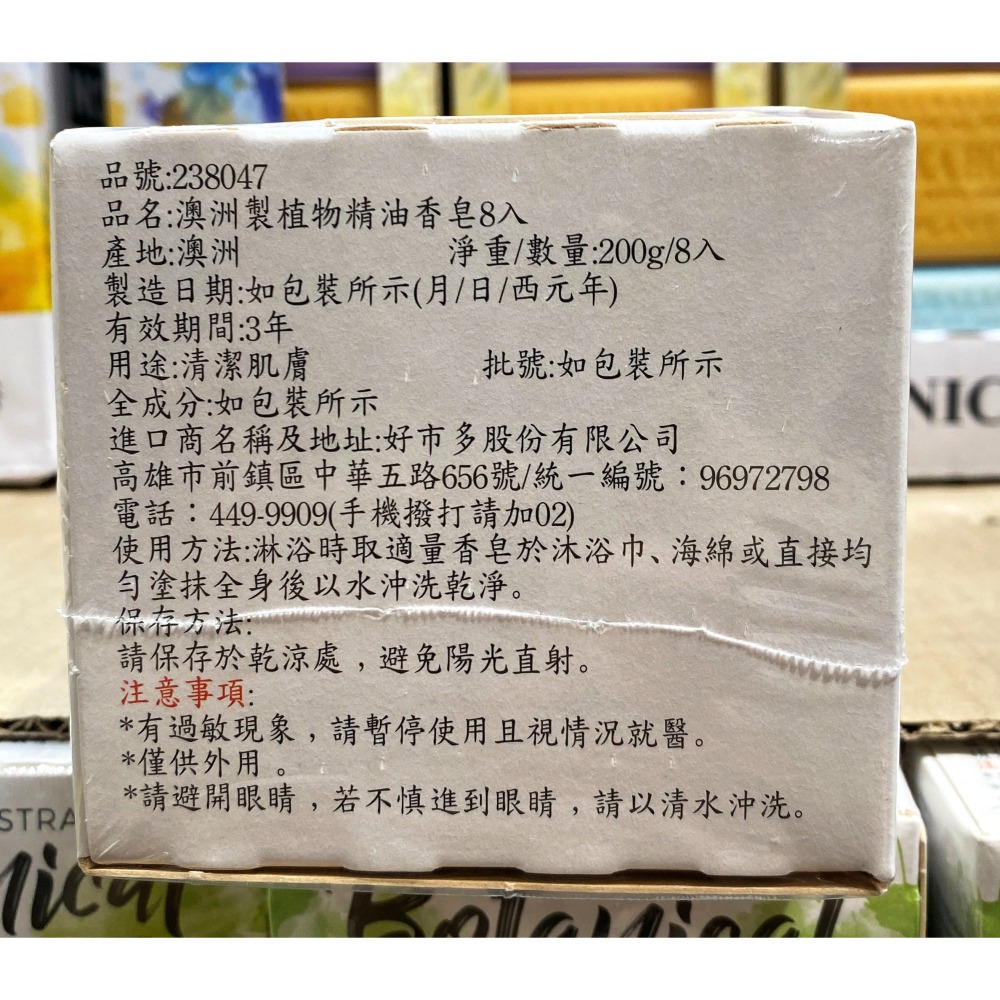 品號:238047
品名:澳洲製植物精油香皂8入
產地:澳洲 淨重/數量:200g/8入
製造日期:如包裝所示(月/日/西元年)
有效期間:3年
用途:清潔肌膚 批號:如包裝所示
全成分:如包裝所示
進口商名稱及地址:好市多股份有限公司
高雄市前鎮區中華五路656號/統一編號：96972798
電話：449-9909(手機撥打請加02)
使用方法:淋浴時取適量香皂於沐浴巾、海綿或直接均
勻塗抹全身後以水沖洗乾淨。
保存方法:
請保存於乾涼處，避免陽光直射。
注意事項:
*有過敏現象，請暫停使用且視情況就醫。
*僅供外用。
*請避開眼睛，若不慎進到眼睛，請以清水沖洗。
NIC
STRA
nical
Botanical